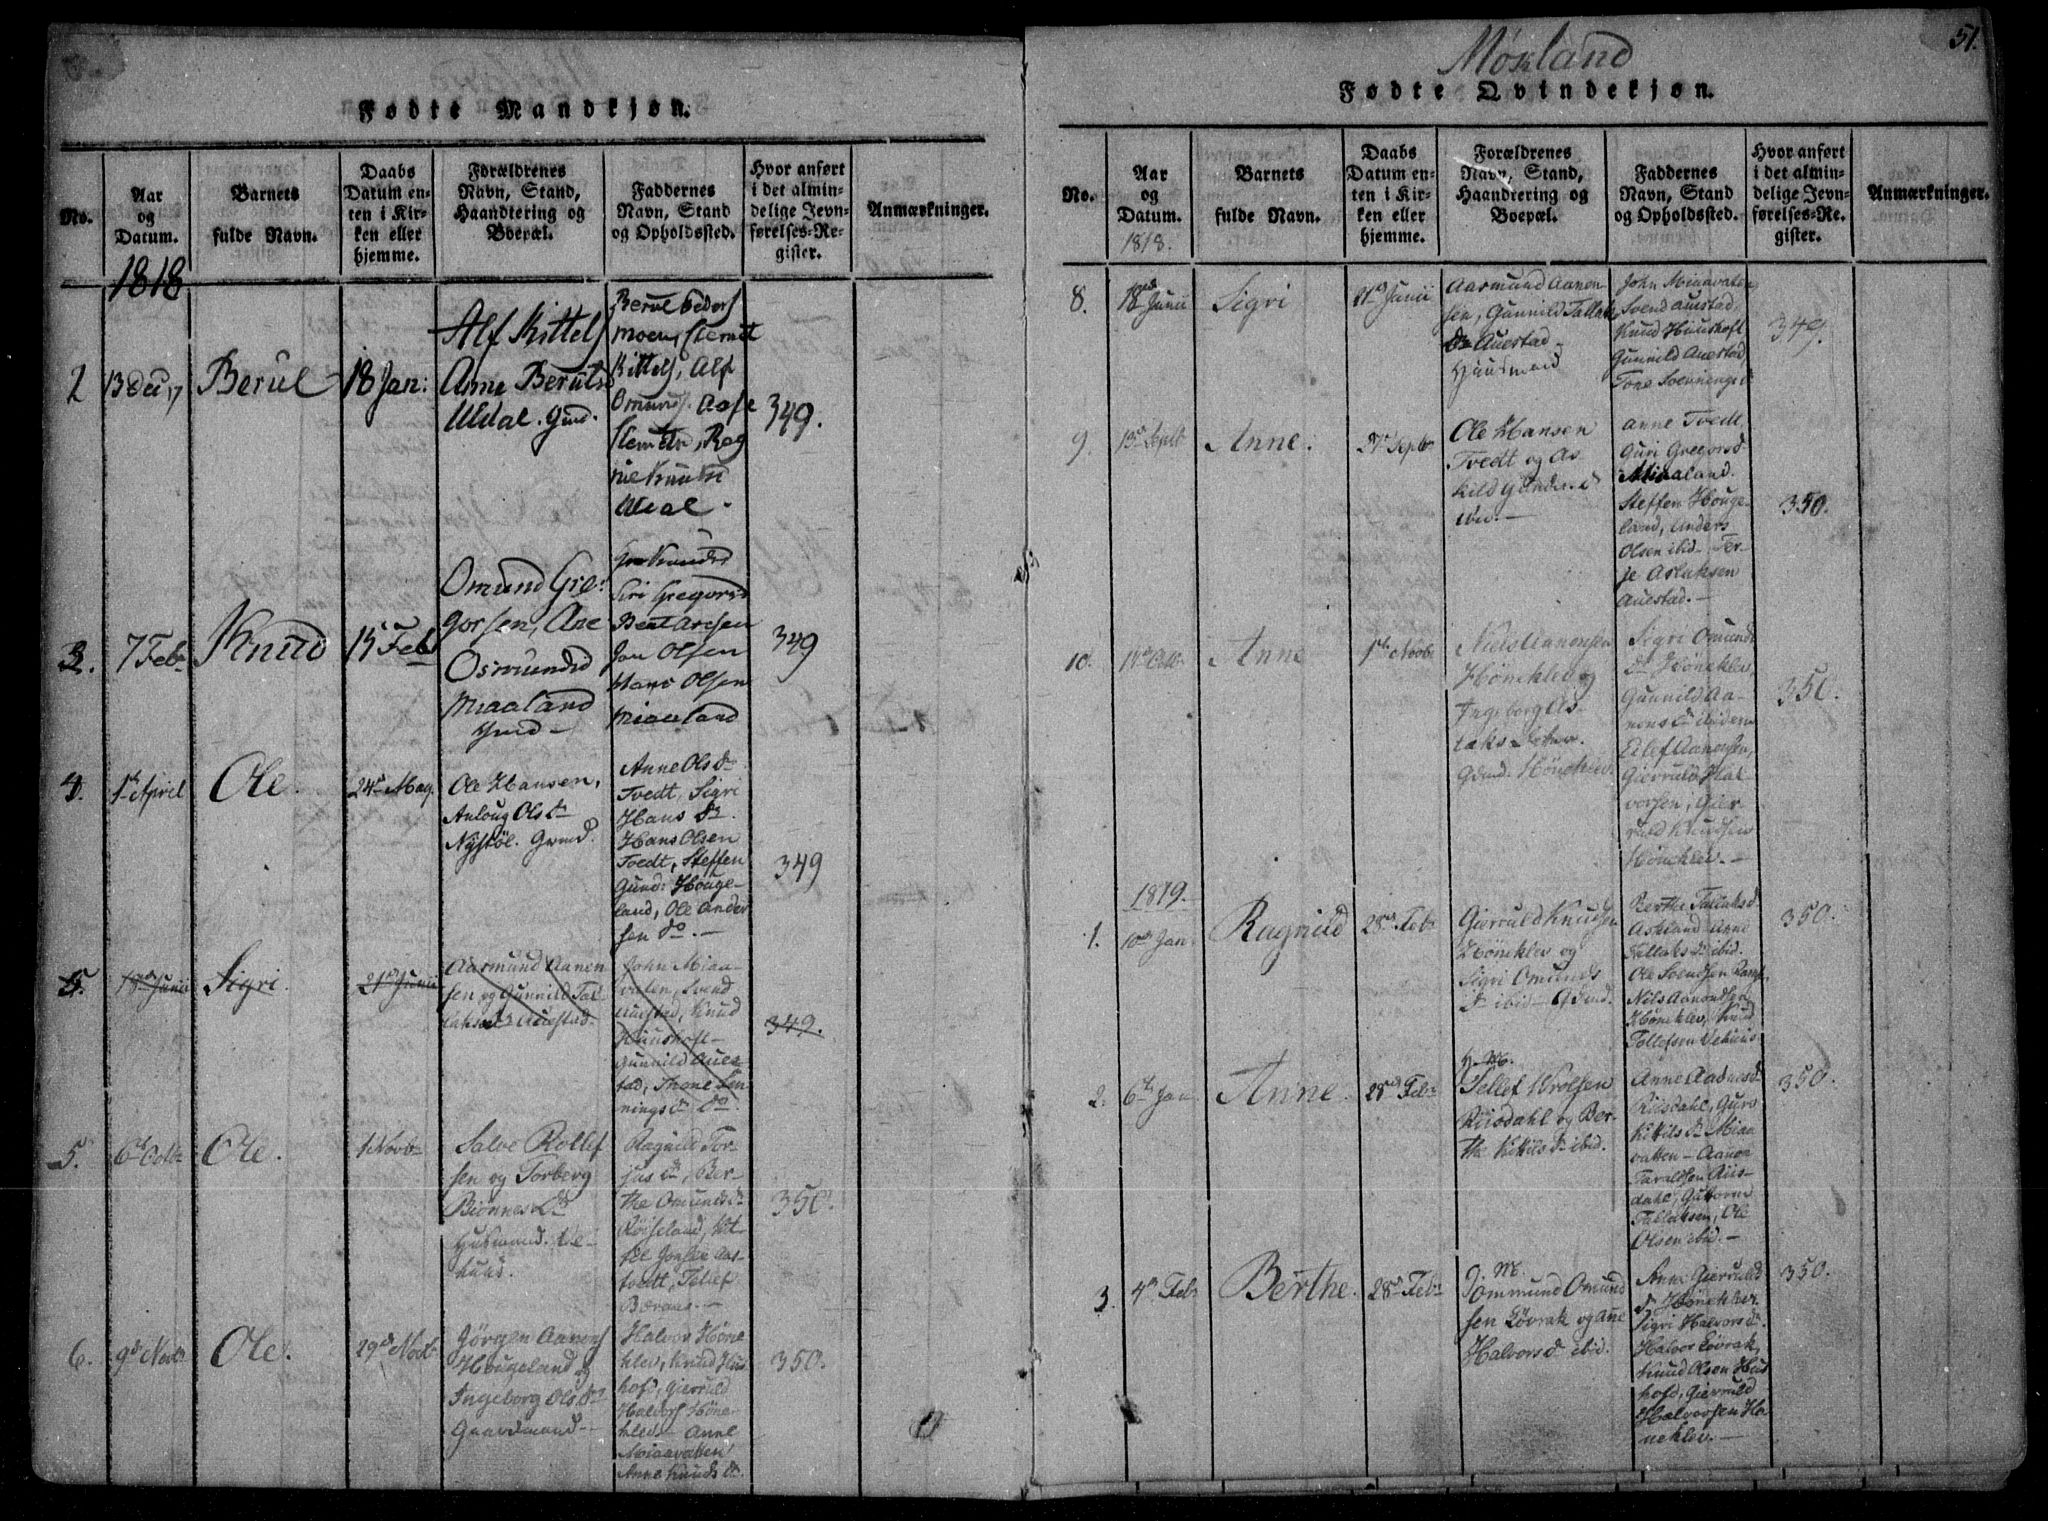 Fødte Mandkjøn.
No.
Aar
og
Datum.
1818
Barnets
fulde Navn.
Daabs
Datum en-
ten i Kir-
ken eller
hjemme.
Forældrenes
Navn, Stand,
Haandtering og
Boepæl.
Faddernes
Navn, Stand
og Opholdssted.
Hvor anført
i det almin-
delige Jevn-
førelses-Re-
gister.
Anmærkninger.
2
13 Dec 17
Berul
18 Jan:
Alf Kittels
Anne Beruls
Uldal. Gmd.
Moen,
Kittels, Alf
Omunds. Aase
349.
3.
7 Feb.
Knud
15 Feb
Omund Gre-
gorsen, Ane
Osmundsd
Miaaland
Gmd
Siri Gregorsd
Bent Aresen
Jon Olsen
Hans Olsen
Miaaland
349
4.
1ste April
Ole.
24de May.
Ole Hansen,
Anloug Olsdr
Nystøl. Grmd.
Anne Olsdr
Tvedt, Sigri
Hans dr.
Hans Olsen
Tvedt, Steffen
Gund: Houge-
land, Ole Ander
sen do. —
349
5.
18de Junii
Sigri.
21de Junii
Aasmund Aanen
sen og Gunnild Tal-
laksdr Auestad.
John Miaa-
vaten, Svend
Auestad, Knud
Huushoft
Gunnild Aues-
tad, Thone Sen-
nings dr do.
349.
5.
6te Octbr
Ole.
1 Novbr
Salve Rollef
sen og Torberg
Biønnesdr
Husmand. Ve-
huus.
Ragnild Tor-
jus dr, Ber-
the Omundsdr
Røiseland,
tvedt, Tellef
350.
6.
9de Novbr
Ole.
29de Novbr
Gørgen Aanons
Hougeland og
Ingeborg Olsdr
Gaardmand
Halvor Høne
klev, Knud Hus
hofd, Gierruld
Halvors Høne-
klev — Anne
Miaavatten
Anne Knuds dr.
350.
Møsland
51.
Fødte Qvindekjøn.
No.
Aar
og
Datum.
1818.
Barnets
fulde Navn.
Daabs
Datum en-
ten i Kir-
ken eller
hjemme.
Forældrenes
Navn, Stand,
Haandtering og
Boepæl.
Faddernes
Navn, Stand
og Opholdssted.
Hvor anført
i det almin-
delige Jevn-
førelses-Re-
gister.
Anmærkninger.
8.
18de Junii
Sigri
21de Junii
Aasmund Aanen
sen, Gunnild Tallaks
dr Auestad
Huusmand
John Miaavaten,
Svend Auestad,
Knud Huushoft
Gunnild Auestad
Tone Svenningsd
349.
9.
13de Septbr
Anne.
27de Septbr
Ole Hansen
Tvedt og As
kild Gunders d
ibid. —
Anne Tvedt,
Guri Gregorsd
Miaaland.
Steffen Houge-
land, Anders
Olsen ibid. Ter-
je Aslaksen
Auestad. —
350.
10.
Anne
1ste Novbr
Niels Aanonsen
Høneklev og
Ingeborg As-
laks Datter.
Gdmd. Høneklev.
Sigri Omunds
dr Høneklev,
Gunnild Aa-
nons dr ibidem
Alef Aanonsen,
Gierruld Hal
vorsen, Gier
ruld Knudsen
Høneklev. —
350.
1819.
1.
10de Jan.
Ragnild
28de Febr
Gierruld Knudsen
Høneklev og
Sigri Omunds
dr ibid — Gdmd.
Berthe Tallaksd
Askland Anne
Tallaks dr ibid.
Ole Svendsen
Nils Aanondsen
Høneklev, Knud
Tollefsen Vehuus
350.
2.
6te Jan.
Anne.
28de Febr
H. M.
Tellef Wrolsen
Riisdahl og Ber-
the Kittilsdr ibid.
Anne Aadnesd
Riisdahl, Guro
Kittilsdr Miaa
vatten — Aanon
Taraldsen Riis-
dahl, Guttorm
Tallaksen, Ole
Olsen ibid. —
350.
3.
4de Febr
Berthe.
28de Febr
J. M.
Ommund Omund
sen Løvrak og Ane
Halvorsd ibid.
Anne Gierrulds
dr Hønekler
Sigri Halvorsd.
Halvor Løvrak,
Knud Olsen Hus
hofd, Gierruld
Halvorsen Hø
neklev. —
350.